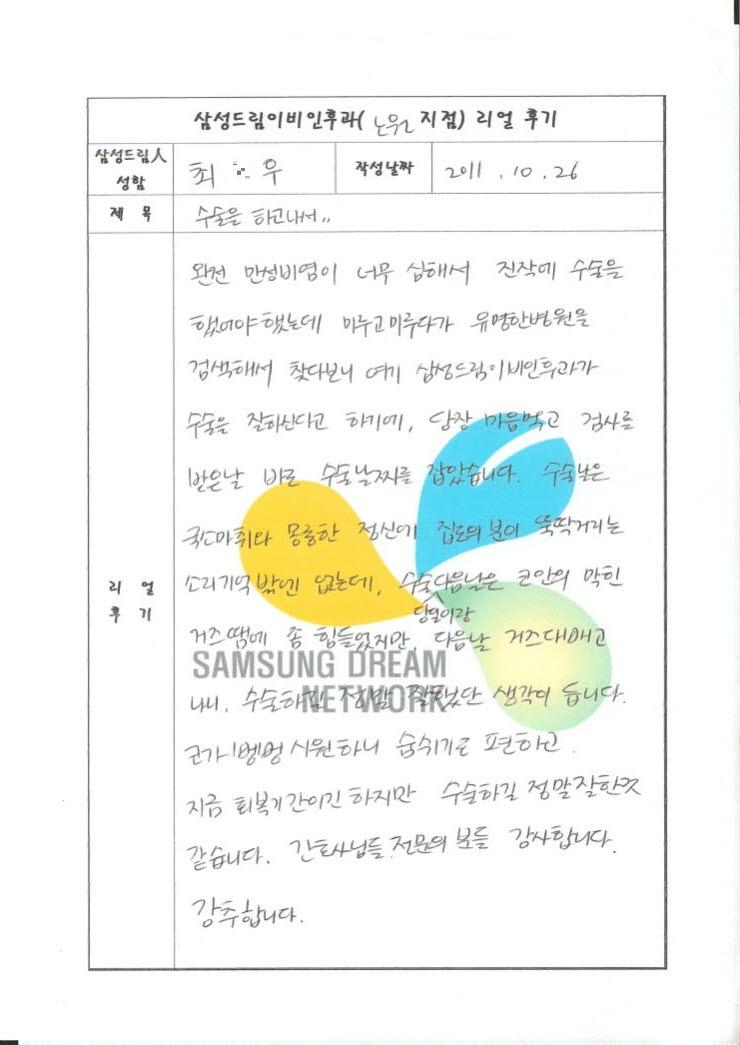 삼성드림이비인후과( 노원 지점) 리얼 후기
삼성드림人
성함
최 우
작성날짜
2011 . 10 . 26
제 목
수술은 하고나서..
완전 만성비염이 너무 심해서 진작에 수술을
했어야했는데 미루고미루다가 유명한병원을
검색해서 찾다보니 여기 삼성드림이비인후과가
수술을 잘하신다고 하기에, 당장 마음먹고 검사를
받은날 바로 수술날짜를 잡았습니다. 수술날은
국소마취와 몽롱한 정신에 집도의분이 뚝딱거리는
소리기억밖엔 없는데, 수술다음날은 코안의 막힌
당일이랑
리 얼
후 기
거즈땜에 좀 힘들었지만, 다음날 거즈다빼고
SAMSUNG DREAM
NETWORK
나니, 수술하길 정말 잘했단 생각이 듭니다.
코가 뻥뻥 시원하니 숨쉬기도 편하고
지금 회복기간이긴 하지만 수술하길 정말잘한것
같습니다. 간호사님들.전문의 분들 감사합니다.
강추합니다.